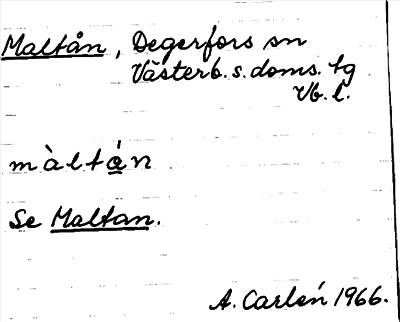 Maltån, Degerfors sn
Västerb. s. doms. tg
Vb. l.
màltá̲n
Se Maltan.
A. Carlén 1966.